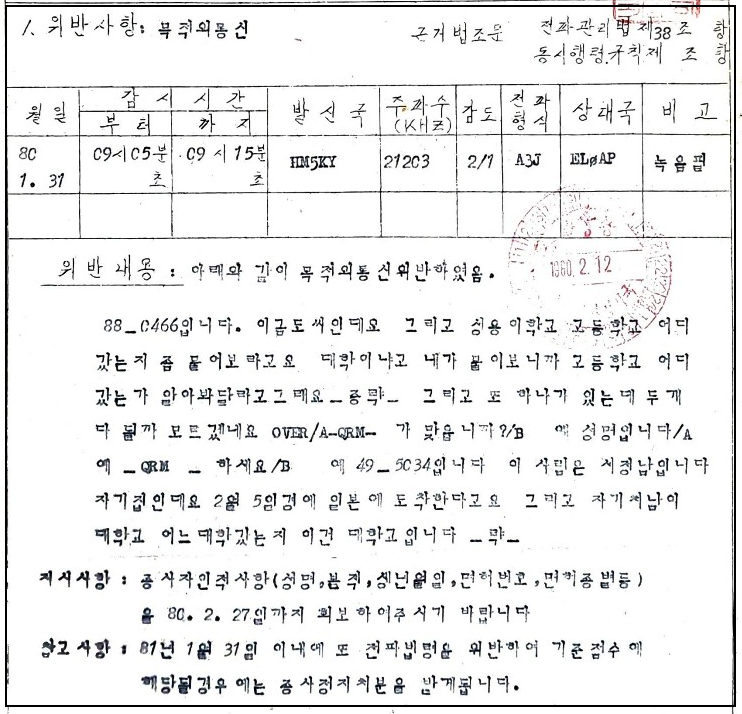 1. 위반사항: 목적외통신 근거법조문 전파관리법 제38조 항
동시행령.규칙제 조 항
월일 감시시간 발신국 주파수 (KHZ) 감도 전파형식 상대국 비고
부터 까지
80 09시05분 09시15분 HM5KY 21203 2/1 A3J ELøAP 녹음필
1. 31 초 초
1980. 2. 12
위반내용 : 아래와 같이 목적외통신위반하였음.
88_0466입니다. 이금도씨인데요 그리고 성용이학고 고등학고 어디
갔는지 좀 물어보라고요 대학이냐고 내가 물어보니까 고등학고 어디
갔는가 알아봐달라고그래요_중략_ 그리고 또 하나가 있는데 두개
다 될까 모르겠네요 OVER/A-QRM- 가 맞읍니까?/B 예 성명입니다/A
예 _ QRM _ 하세요/B 예 49_5034입니다 이 사람은 서정남입니다
자기집인데요 2월 5일경에 일본에 도착한다고요 그리고 자기처남이
대학고 어느대학갔는지 이건 대학고입니다 _략_
지시사항 : 종사자인적사항(성명,본적,생년월일,면허번호,면허종별등)
을 80. 2. 27일까지 회보하여주시기 바랍니다
참고사항 : 81년 1월 31일 이내에 또 전파법령을 위반하여 기준점수에
해당될경우에는 종사정지처분을 받게됩니다.